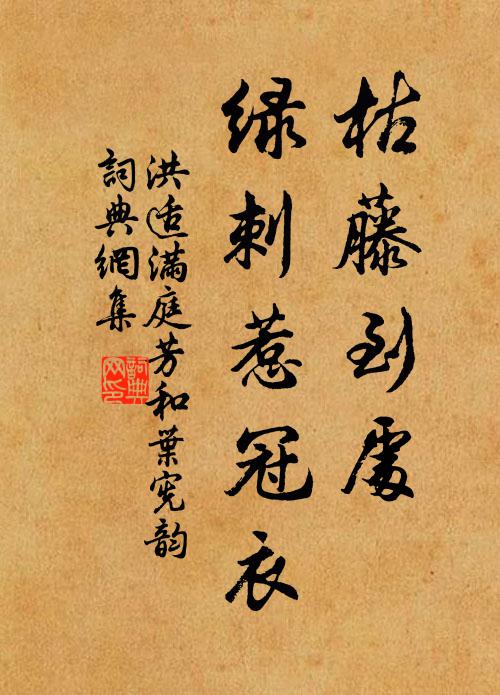 枯藤到處
緑刺惹冠衣
洪适滿庭芳和葉宪韵
詞典網集
詞典
网印